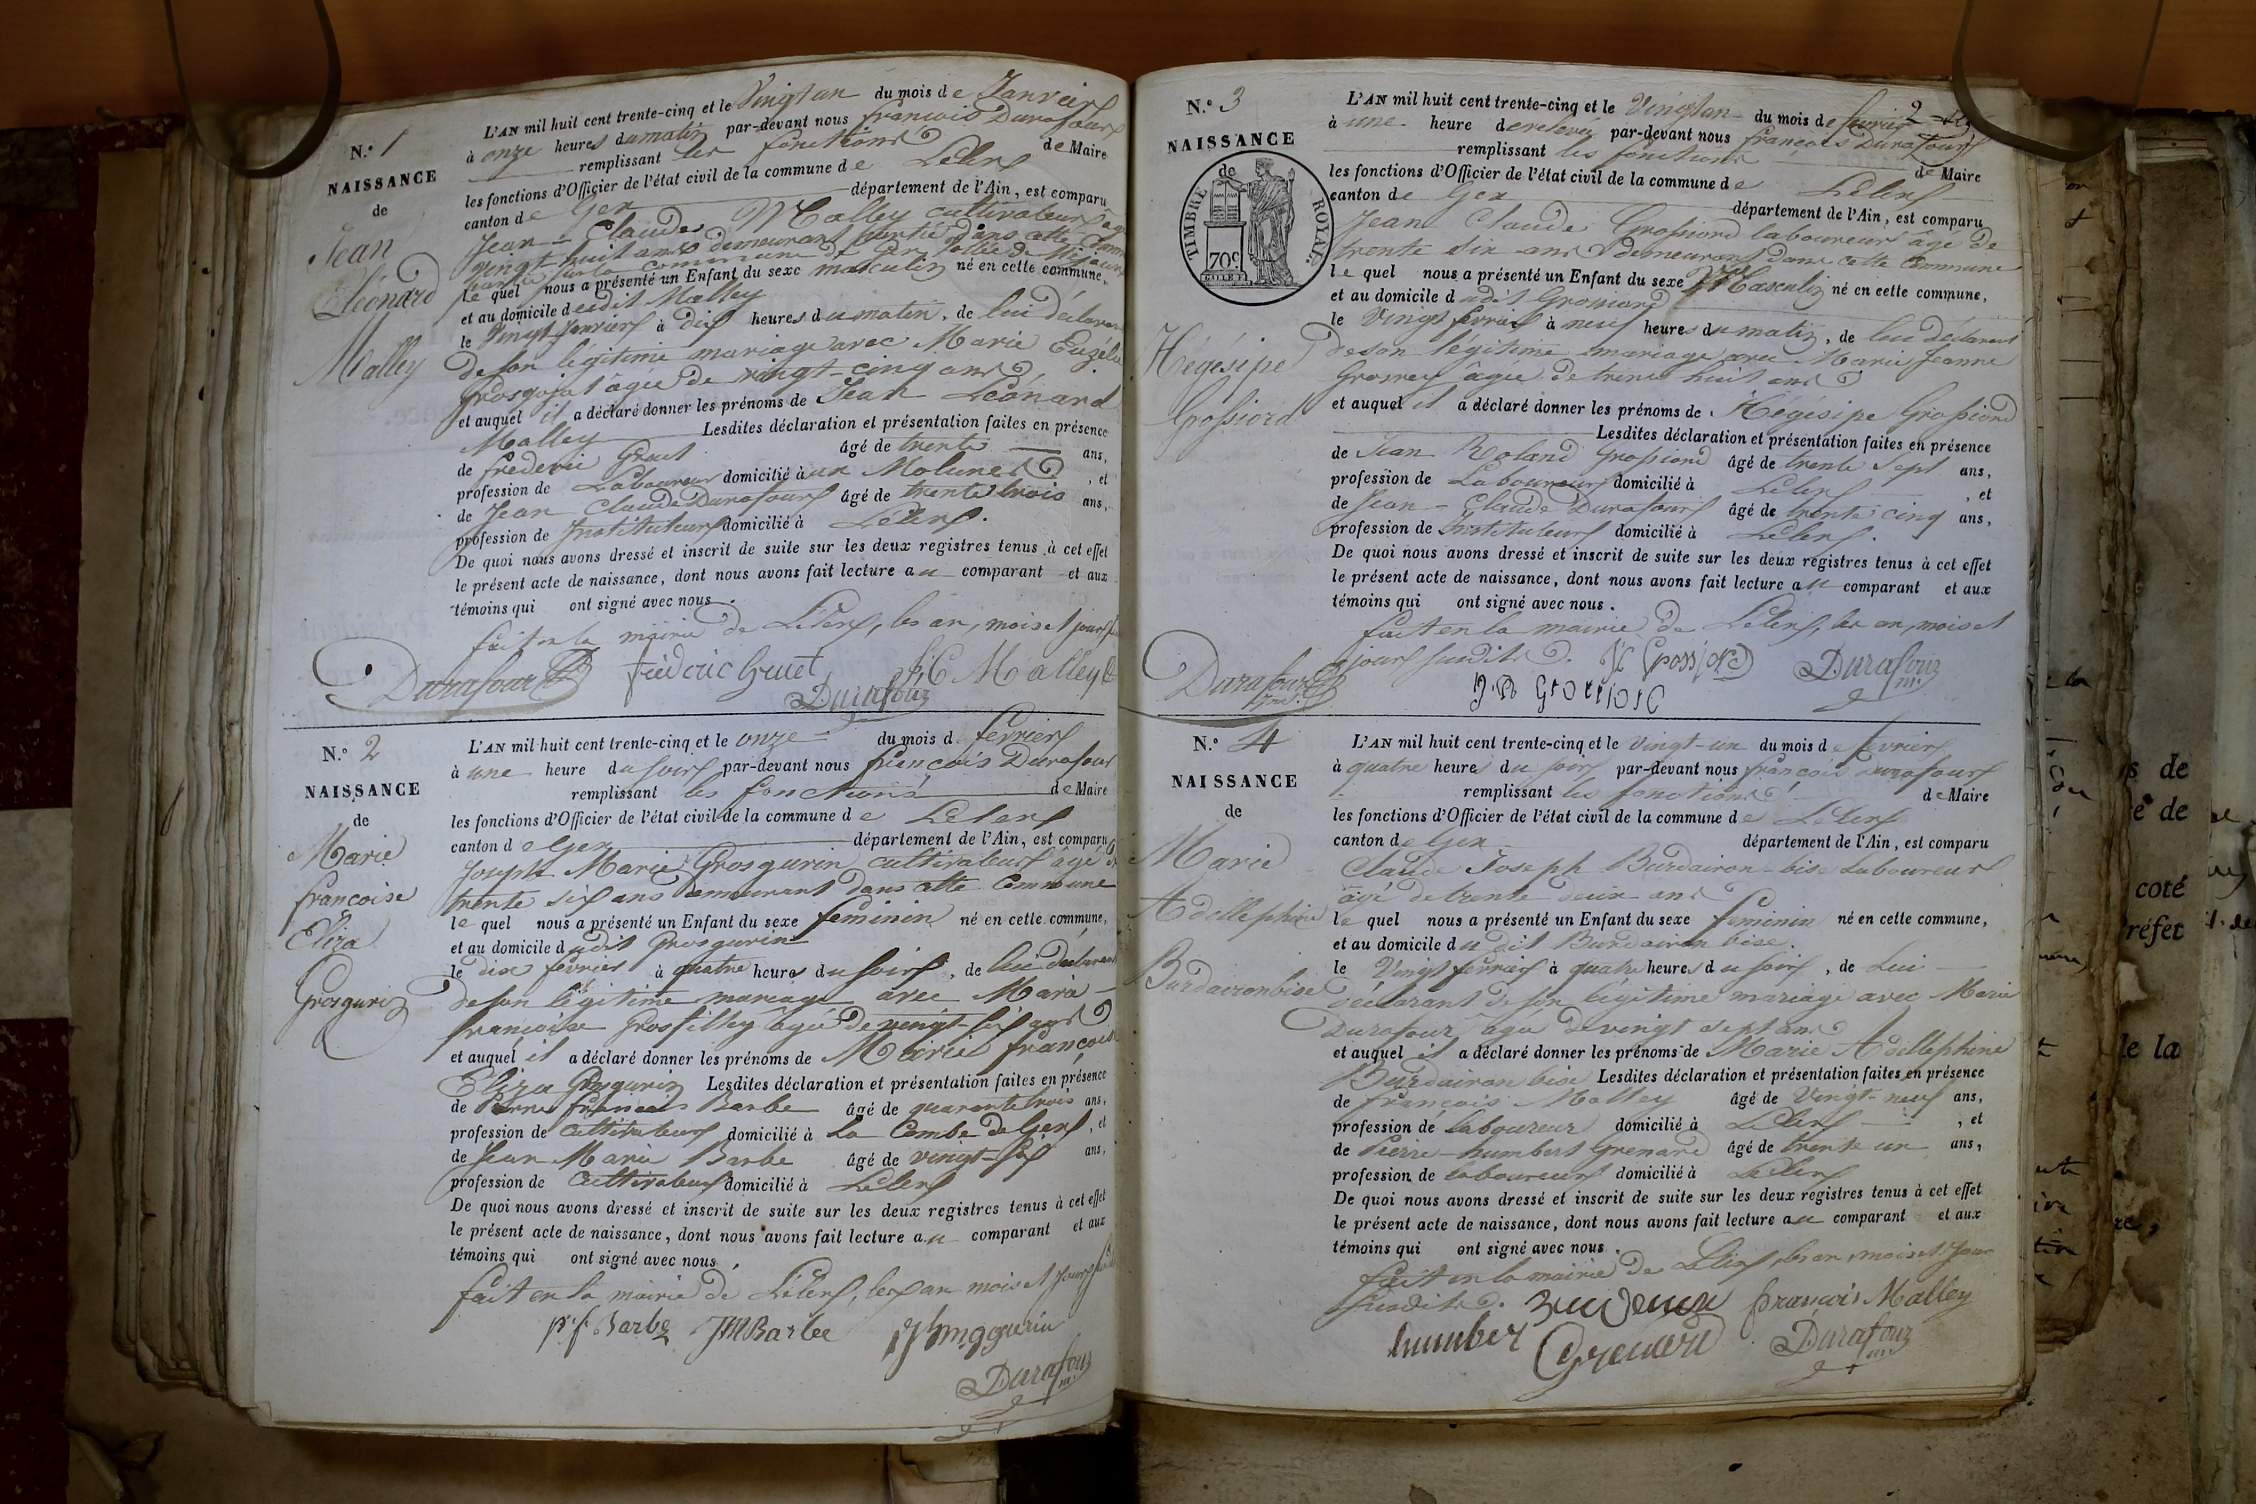 N.° 1
NAISSANCE
de
Jean
Léonard
Malley
L'AN mil huit cent trente-cinq et le Vingt un du mois de Janvier
à onze heures du matin par-devant nous francois Durafour
remplissant les fonctions de Maire
les fonctions d'Officier de l'état civil de la commune de Lélex
canton de Gex département de l'Ain, est comparu
Jean-Claude Malley cultivateur
vingt huit ans demeurant dans cette
le quel nous a présenté un Enfant du sexe masculin né en cette commune,
et au domicile dudit Malley
le Vingt Janvier à dix heures du matin, de lui déclarant
de son légitime mariage avec Marie
Grosgojat âgée de vingt-cinq ans
et auquel il a déclaré donner les prénoms de Jean Léonard
Malley Lesdites déclaration et présentation faites en présence
de frederic Gruet âgé de trente ans,
profession de Laboureur domicilié à Molunes, et
de Jean Claude Durafour âgé de trente trois ans,
profession de Instituteur domicilié à Lélex.
De quoi nous avons dressé et inscrit de suite sur les deux registres tenus à cet effet
le présent acte de naissance, dont nous avons fait lecture au comparant et aux
témoins qui ont signé avec nous.
fait en la mairie de Lélex, les an, mois et jour
Durafour frédéric Gruet J C Malley
Durafour
N.° 2
NAISSANCE
de
Marie
francoise
Eliza
Grosgurin
L'AN mil huit cent trente-cinq et le onze du mois d fevrier
à une heure du soir par-devant nous francois Durafour
remplissant les fonctions de Maire
les fonctions d'Officier de l'état civil de la commune de Lelex
canton de Gex département de l'Ain, est comparu
Joseph Marie Grosgurin cultivateur agé de
trente six ans demeurant dans cette Commune
le quel nous a présenté un Enfant du sexe feminin né en cette commune,
et au domicile dudit Grosgurin
le dix fevrier à quatre heures du soir, de lui déclarant
de son légitime mariage avec Marie
francoise Grosfilley âgée de vingt-six ans
et auquel il a déclaré donner les prénoms de Marie francoise
Eliza Grosgurin Lesdites déclaration et présentation faites en présence
de Pierre francois Barbe âgé de quarante trois ans,
profession de Cultivateur domicilié à La Combe de Gex, et
de Jean Marie Barbe âgé de vingt-six ans,
profession de Cultivateur domicilié à Lelex
De quoi nous avons dressé et inscrit de suite sur les deux registres tenus à cet effet
le présent acte de naissance, dont nous avons fait lecture au comparant et aux
témoins qui ont signé avec nous.
fait en la mairie de Lélex, les an mois et jour
p. f. Barbe JM Barbe
Durafour
2
N.° 3
NAISSANCE
de
TIMBRE ROYAL
70c
Hégésipe
Grossiord
L'AN mil huit cent trente-cinq et le Vingt un du mois de fevrier
à une heure de relevée par-devant nous françois Durafour
remplissant les fonctions de Maire
les fonctions d'Officier de l'état civil de la commune de Lélex
canton de Gex département de l'Ain, est comparu
Jean Claude Grossiord laboureur âgé de
trente six ans demeurant dans cette Commune
le quel nous a présenté un Enfant du sexe Masculin né en cette commune,
et au domicile dudit Grossiord
le Vingt fevrier à neuf heures du matin, de lui déclarant
de son légitime mariage avec Marie Jeanne
âgée de trente huit ans
et auquel il a déclaré donner les prénoms de Hégésipe Grossiord
Lesdites déclaration et présentation faites en présence
de Jean Roland Grossiord âgé de trente sept ans,
profession de Laboureur domicilié à Lélex, et
de Jean-Claude Durafour âgé de trente cinq ans,
profession de Instituteur domicilié à Lelex.
De quoi nous avons dressé et inscrit de suite sur les deux registres tenus à cet effet
le présent acte de naissance, dont nous avons fait lecture au comparant et aux
témoins qui ont signé avec nous.
fait en la mairie de Lélex, les an mois et
jour susdits. JC Grossiord Durafour
Durafour J. R Grossiord
N.° 4
NAISSANCE
de
Marie
Adellephine
Burdaironbise
L'AN mil huit cent trente-cinq et le vingt-un du mois de fevrier
à quatre heures du soir par-devant nous francois Durafour
remplissant les fonctions de Maire
les fonctions d'Officier de l'état civil de la commune de Lelex
canton de Gex département de l'Ain, est comparu
Claude Joseph Burdairon-bise Laboureur
agé de trente deux ans
le quel nous a présenté un Enfant du sexe feminin né en cette commune,
et au domicile du dit Burdairon bise.
le Vingt fevrier à quatre heures du soir, de Lui
déclarant de son légitime mariage avec Marie
Durafour âgée de vingt sept ans
et auquel il a déclaré donner les prénoms de Marie Adellephine
Burdairon bise Lesdites déclaration et présentation faites en présence
de françois Malley âgé de Vingt-neuf ans,
profession de laboureur domicilié à Lelex, et
de Pierre-humbert Grenard âgé de trente un ans,
profession de laboureur domicilié à Lelex
De quoi nous avons dressé et inscrit de suite sur les deux registres tenus à cet effet
le présent acte de naissance, dont nous avons fait lecture au comparant et aux
témoins qui ont signé avec nous.
fait en la mairie de Lélex, les an mois et jour
susdits. françois Malley
humbert Grenard Durafour
de
de
coté
réfet
de la